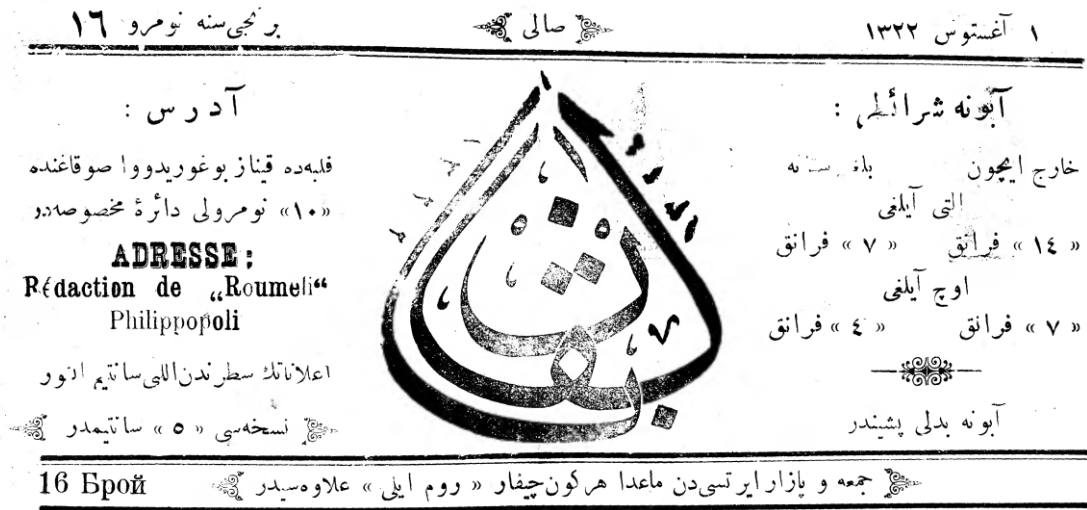 ١ آغستوس ١٣٢٢
صالى
برنجى سنه نومرو ١٦
آبونه شرائطى :
خارج ايچون
التى آيلغى
« ١٤ » فرانق « ٧ » فرانق
اوچ آيلغى
« ٧ » فرانق « ٤ » فرانق
آبونه بدلى پشيندر
آدرس :
فلبه‌ده قيناز بوغوريدووا صوقاغنده
«١٠» نومرولى دائرهٔ مخصوصه‌در
ADRESSE:
Rédaction de „Roumeli“
Philippopoli
اعلاناتك سطرندن اللى سانتيم النور
نسخه‌سى « ٥ » سانتيمدر
جمعه و پازار ايرتسى‌دن ماعدا هركون چيقار « روم ايلى » علاوه‌سيدر
16 Брой